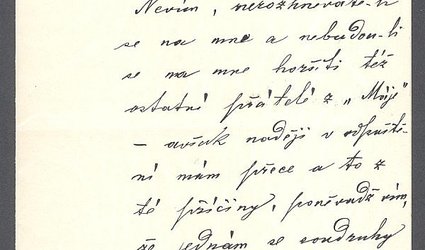 Nevím, nerozhněváte-li
se na mne a nebudou-li
se na mne horšiti též
ostatní přátelé z „Máje"
– avšak naději v odpuště-
ní mám přece a to z
té příčiny, poněvadž vím,
že jednám se soudruhy